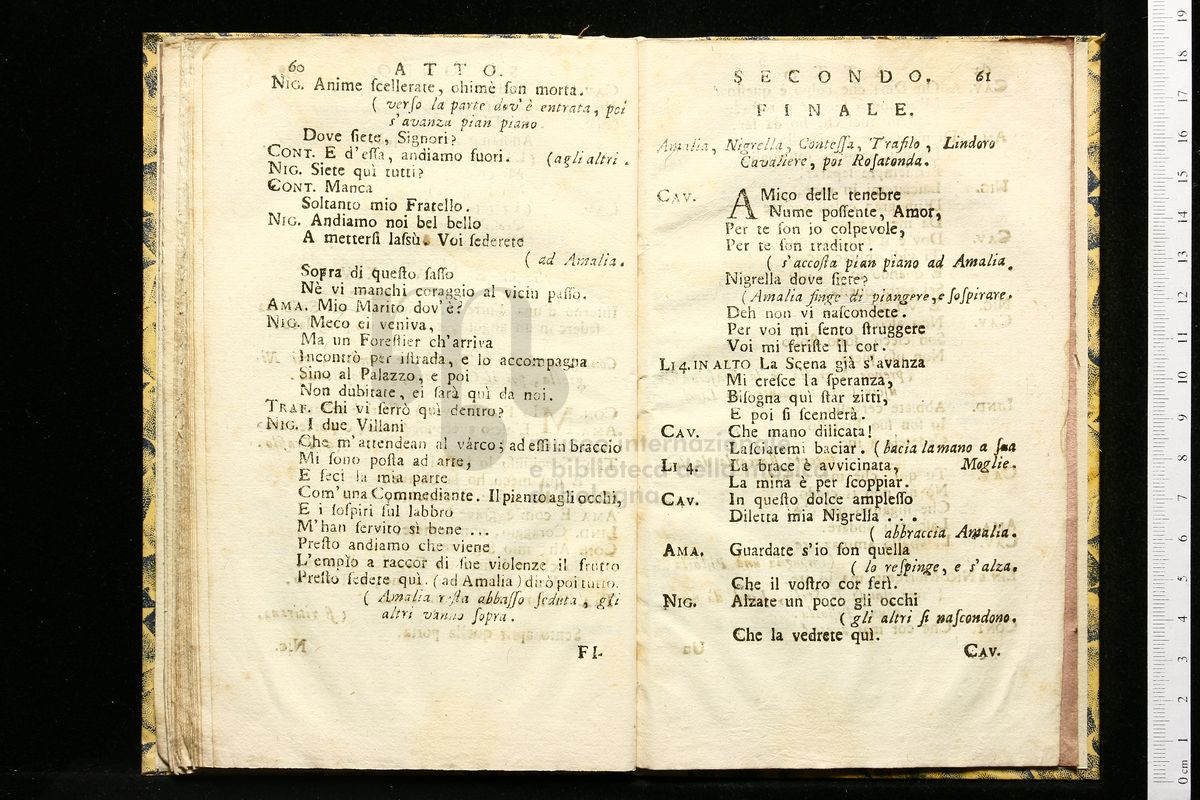 60 ATTO.
NIG. Anime ſcellerate, ohimè ſon morta.
( verſo la parte dov'è entrata, poi
s'avanza pian piano.
Dove ſiete, Signori?
CONT. E d'eſſa, andiamo fuori. (agli altri.
NIG. Siete quì tutti?
CONT. Manca
Soltanto mio Fratello.
NIG. Andiamo noi bel bello
A metterſi laſsù. Voi ſederete
( ad Amalia.
Sopra di queſto ſaſſo
Nè vi manchi coraggio al vicin paſſo.
AMA. Mio Marito dov'è?
NIG. Meco ei veniva,
Ma un Foreſtier ch'arriva
Incontrò per iſtrada, e lo accompagna
Sino al Palazzo, e poi
Non dubitate, ei ſarà quì da noi.
TRAF. Chi vi ſerrò quì dentro?
NIG. I due Villani
Che m'attendean al vàrco; ad eſſi in braccio
Mi ſono poſta ad arte,
E feci la mia parte
Com'una Commediante. Il pianto agli occhi,
E i ſoſpiri ſul labbro
M'han ſervito sì bene ...
Preſto andiamo che viene
L'empìo a raccor di ſue violenze il frutto
Preſto ſedete quì. (ad Amalia) dirò poi tutto.
( Amalia reſta abbaſſo ſeduta, gli
altri vanno ſopra.
FI-
SECONDO. 61
FINALE.
Amalia, Nigrella, Conteſſa, Trafilo, Lindoro
Cavaliere, poi Roſatonda.
CAV. AMico delle tenebre
Nume poſſente, Amor,
Per te ſon io colpevole,
Per te ſon traditor.
( s'accoſta pian piano ad Amalia.
Nigrella dove ſiete?
(Amalia finge di piangere, e ſoſpirare.
Deh non vi naſcondete.
Per voi mi ſento ſtruggere
Voi mi feriſte il cor.
LI 4. IN ALTO La Scena già s'avanza
Mi creſce la ſperanza,
Biſogna quì ſtar zitti,
E poi ſi ſcenderà.
CAV. Che mano dilicata!
Laſciatemi baciar. (bacia la mano a ſua
LI 4. La brace è avvicinata, Moglie.
La mina è per ſcoppiar.
CAV. In queſto dolce ampleſſo
Diletta mia Nigrella ...
( abbraccia Amalia.
AMA. Guardate s'io ſon quella
( lo reſpinge, e s'alza.
Che il voſtro cor ferì.
NIG. Alzate un poco gli occhi
( gli altri ſi naſcondono.
Che la vedrete quì.
CAV.
museo internazionale
e biblioteca della musica
di bologna
0 cm 1 2 3 4 5 6 7 8 9 10 11 12 13 14 15 16 17 18 19